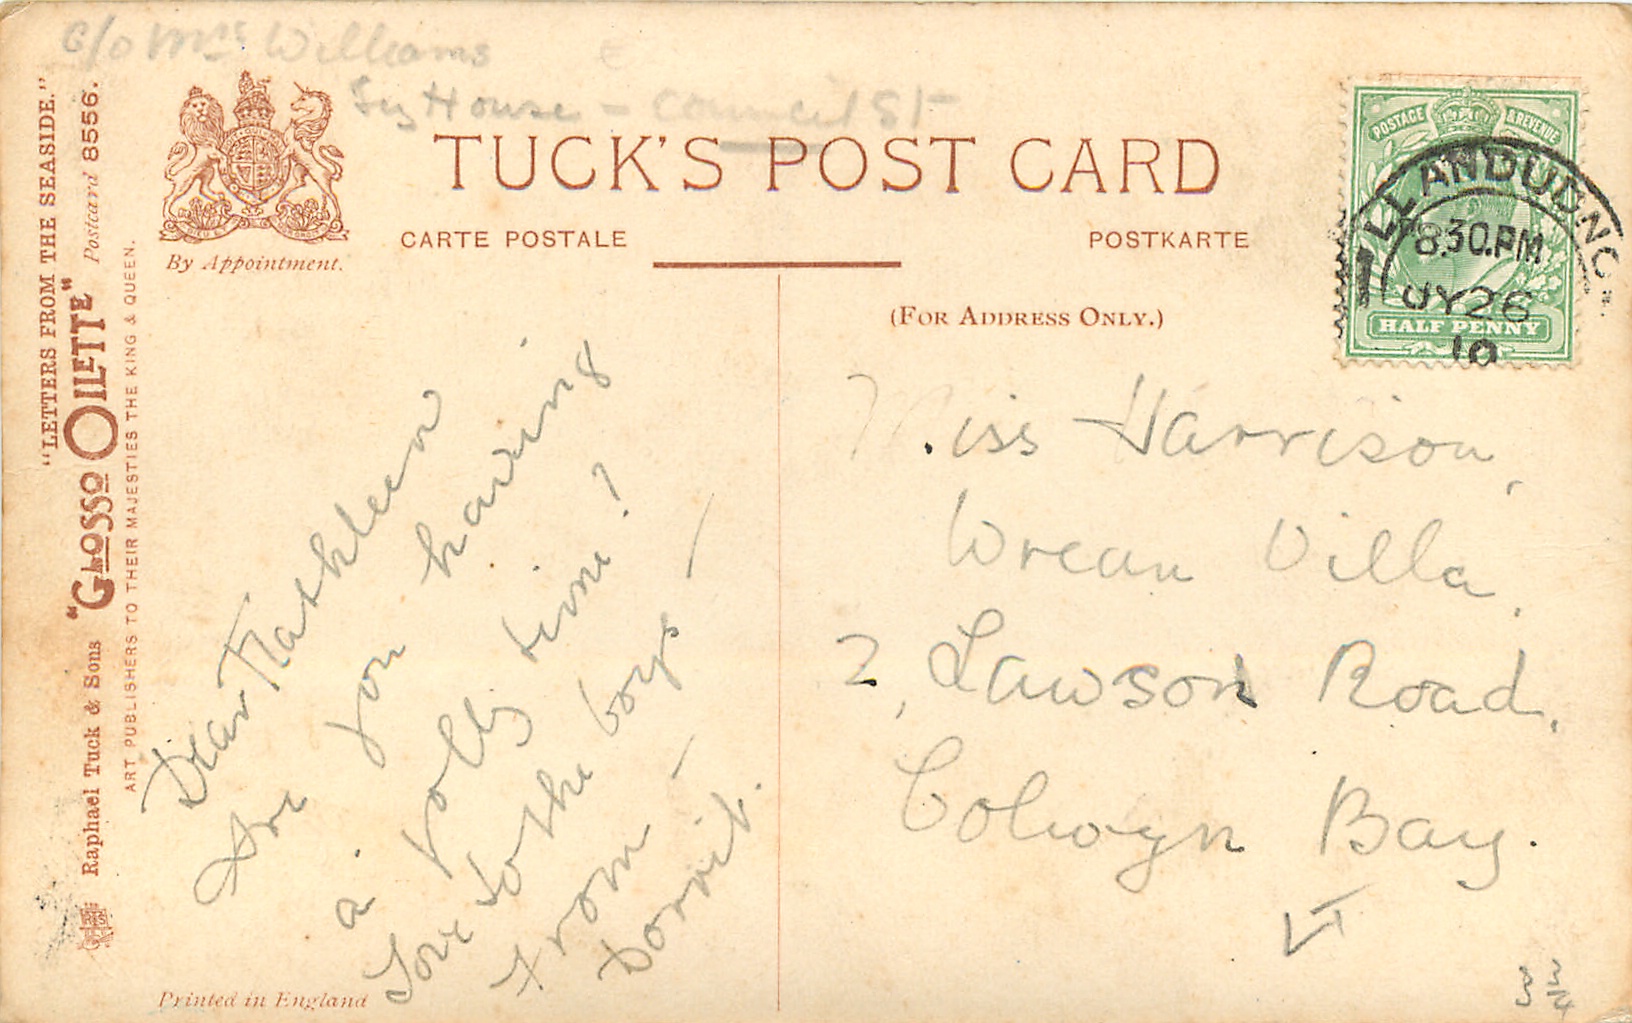 C/o Mrs Williams
House - Council St
TUCK'S POST CARD
CARTE POSTALE
POSTKARTE
By Appointment.
(FOR ADDRESS ONLY.)
"LETTERS FROM THE SEASIDE."
Postcard 8556.
Raphael Tuck & Sons "GLOSSO OILETTE"
ART PUBLISHERS TO THEIR MAJESTIES THE KING & QUEEN.
POSTAGE & REVENUE
HALF PENNY
LLANDUDNO
1
8.30.PM
JY 26
10
Dear Kathleen
Are you having
a jolly time?
Love to the boys -
From -
Dorrit.
Miss Harrison,
Wrean Villa,
2, Lawson Road,
Colwyn Bay.
Printed in England